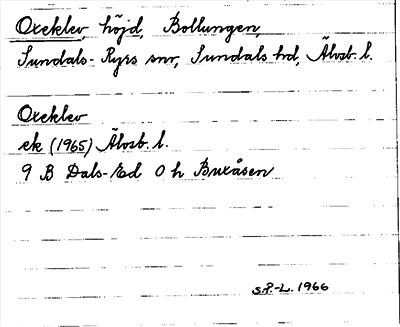 Oxeklev, höjd, Bollungen,
Sundals-Ryrs snr, Sundals hd, Älvsb. l.
Oxeklev
ek (1965) Älvsb. l.
9 B Dals-Ed 0 h Buxåsen
S.P.-L. 1966